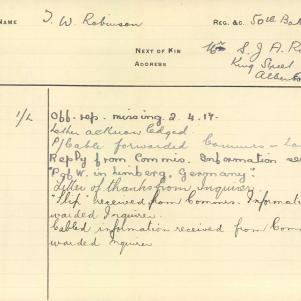 NAME J. W. Robinson REG. &C. 50th Ba
NEXT OF KIN S. J. A. R
ADDRESS King Street
Albert
1/L Off. rep. missing 2.4.17.
Letter acknowledged.
P/Cable forwarded Commrs -
Reply from Commis. Information se
"P of W. in Limberg, Germany."
Letter of thanks from Inquirer.
"Slip" received from Commrs. Informati
warded Inquirer.
Cabled information received from Com
warded Inquirer